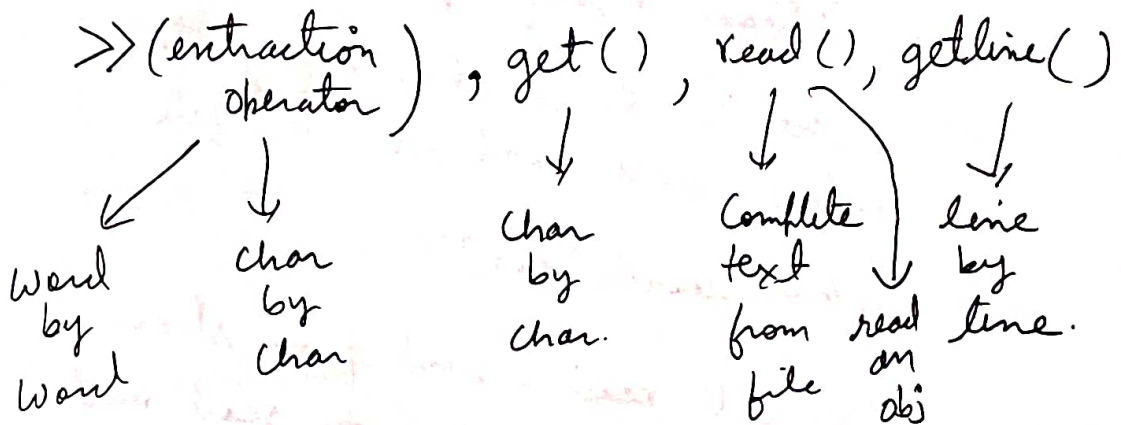 >> (extraction operator), get(), read(), getline()
word
by
word
char
by
char
char
by
char.
Complete
text
from
file
read
an
obj
line
by
line.